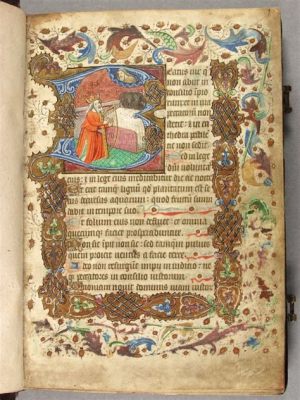 Beatus uir q
non abiit in
consilio impio
rum et in uia
peccatorum non
stetit: et in ca
thedra pestile
cie non sedit
Sed in lege
dni uoluntas
eius: et in lege eius meditabitur die ac nocte
Et erit tamq lignum qd plantatum est se
cus decursus aquarum: quod fructum suum
dabit in tempore suo
Et folium eius non defluet: et omnia
quecumq faciet prosperabuntur
Non sic impii non sic: sed tamqm puluis
quem proicit uentus a facie terre
Ideo non resurgunt impii in iudicio: ne
q peccatores in consilio iustorum
Quoniam nouit dominus uiam iustor